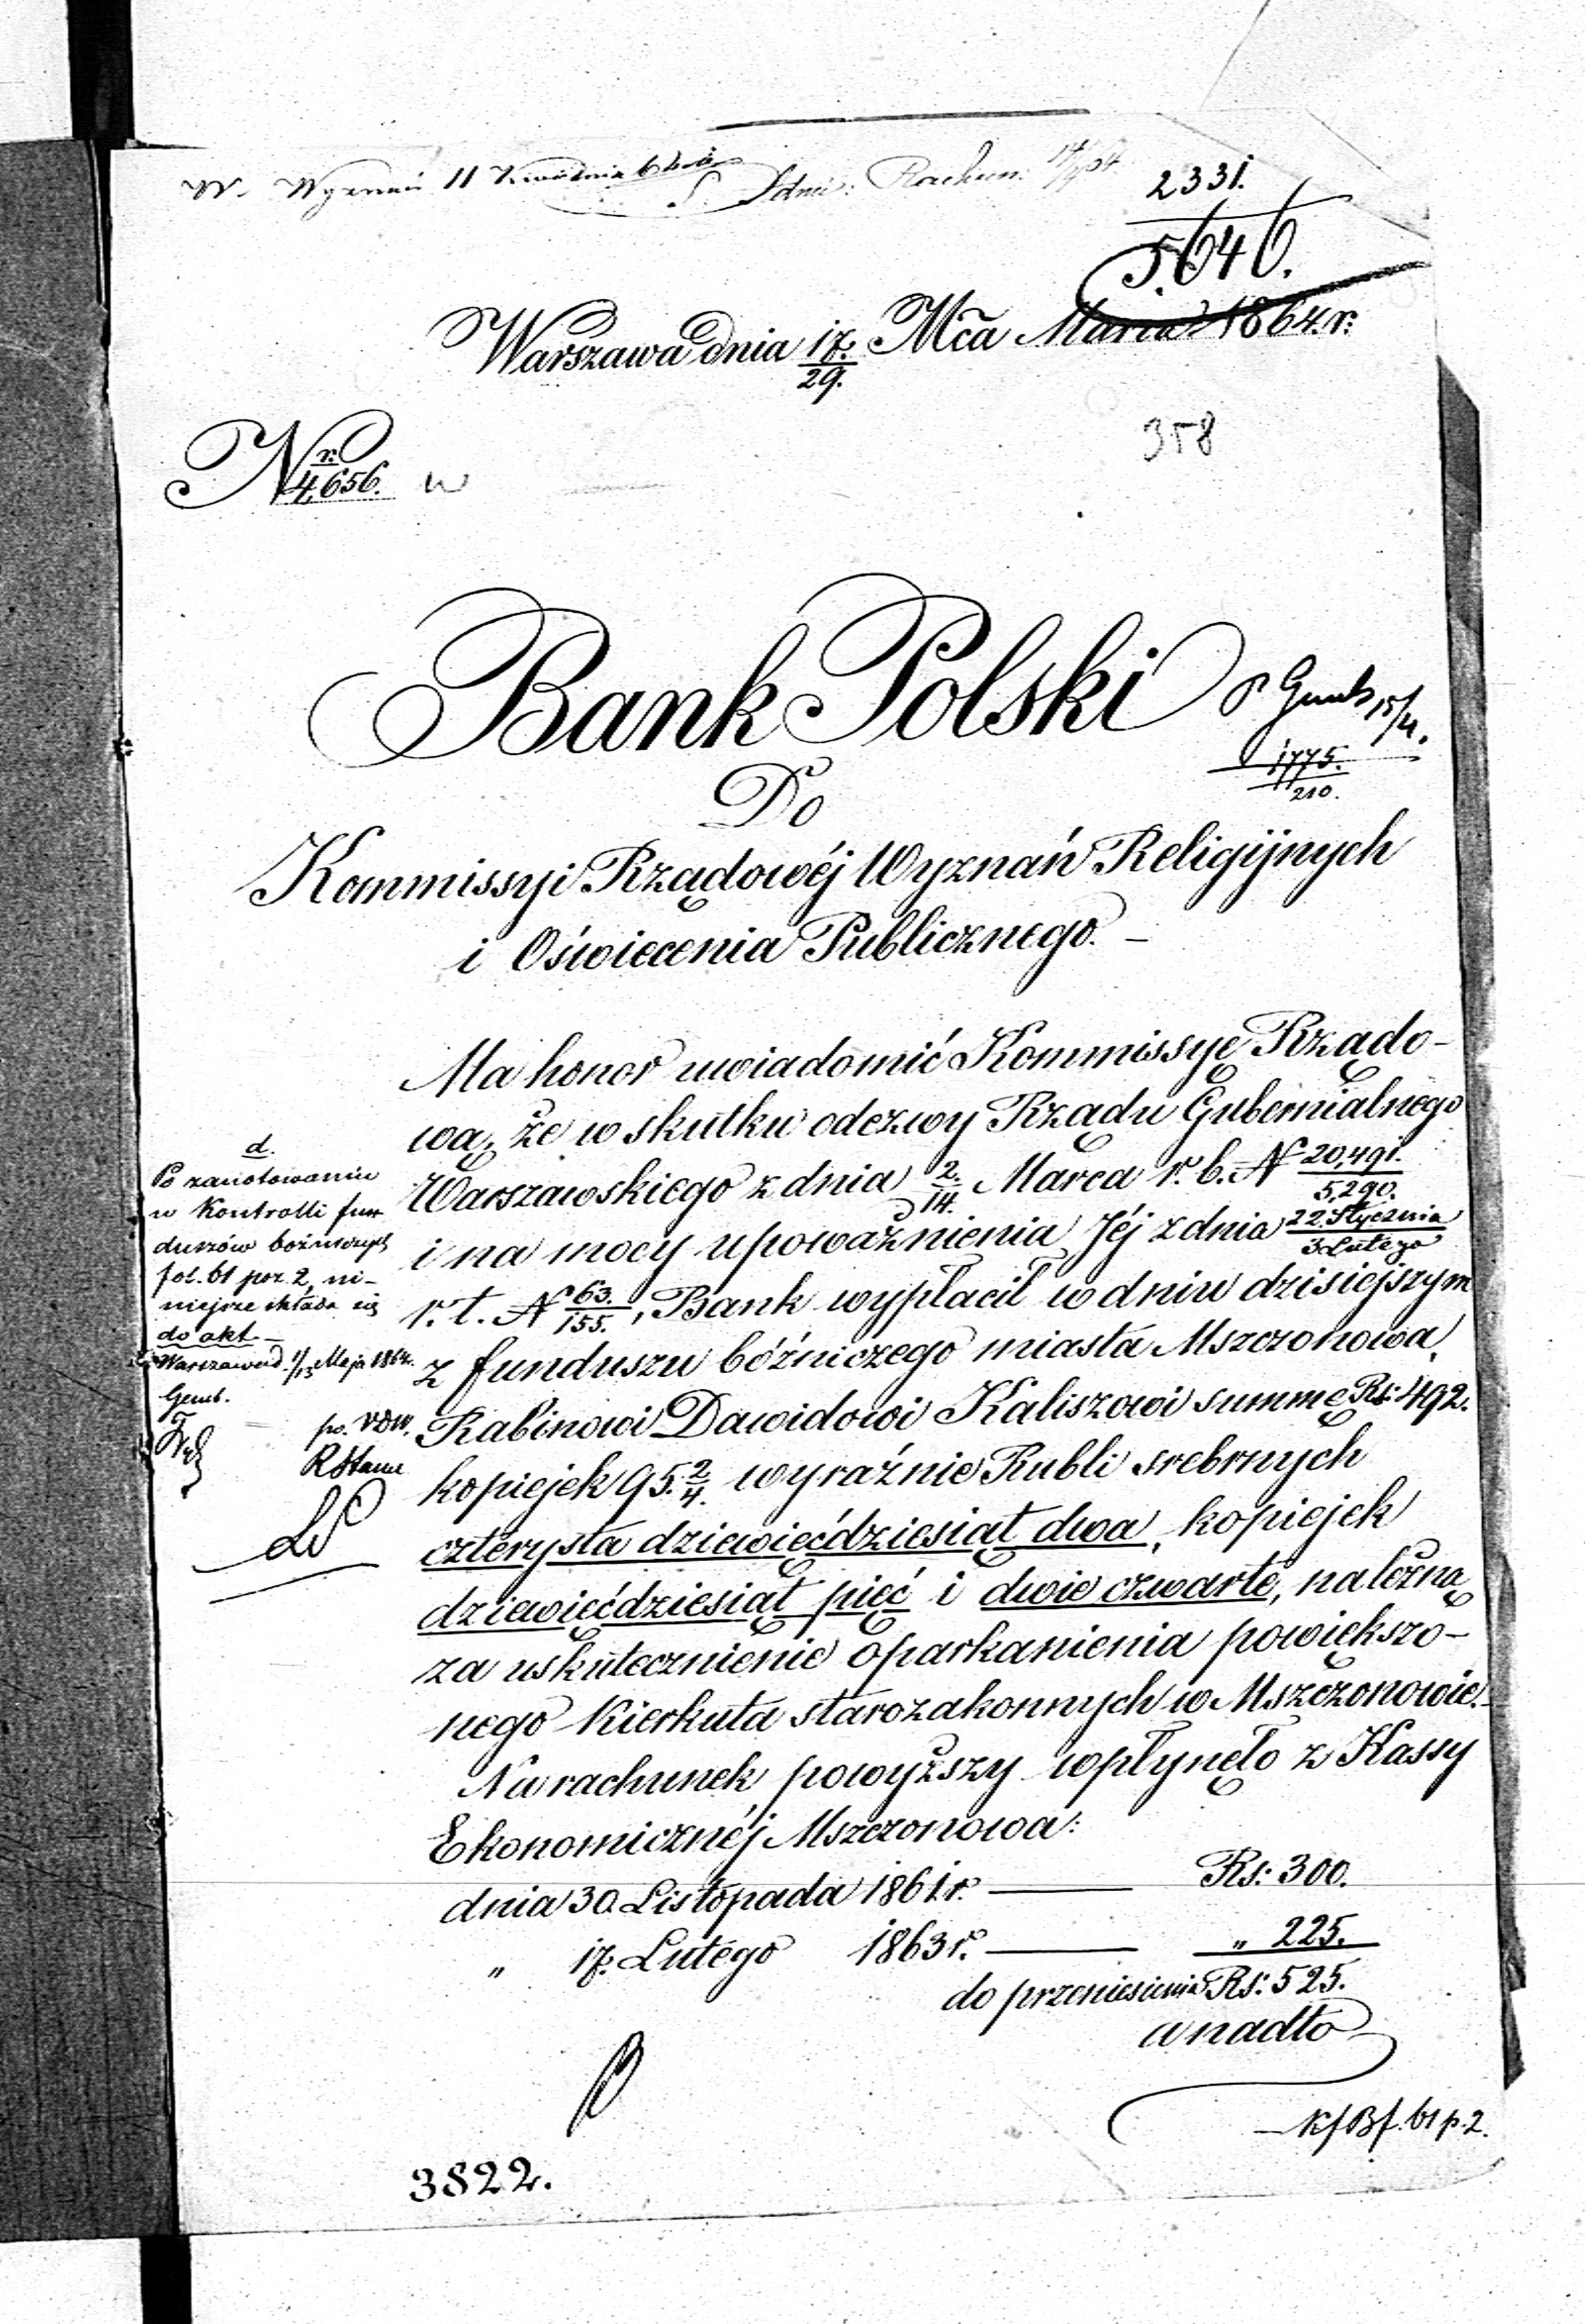 W. Wyznań 11 Kwietnia 64
Rachun:
2331.
5646.
Warszawa dnia 17./29. Mca Marca 1864.r:
358
Nr. 4,656. w
Bank Polski
15/4.
1775.
210.
Do
Kommissyi Rządowéj Wyznań Religijnych
i Oświecenia Publicznego. –
Ma honor uwiadomić Kommissyę Rządo-
wą, że w skutku odezwy Rządu Gubernialnego
Warszawskiego z dnia 2./14. Marca r. b. N 20,491./5,290.
i na mocy upoważnienia Jéj z dnia 22 Stycznia/3 Lutego
r. t. N 63./155., Bank wypłacił w dniu dzisiejszym
z funduszu bóźniczego miasta Mszczonowa,
Rabinowi Dawidowi Kaliszowi summę Rs: 492.
kopiejek 95.2/4. wyraźnie Rubli srebrnych
czterysta dziewięćdziesiąt dwa, kopiejek
dziewięćdziesiąt pięć i dwie czwarte, należną
za uskutecznienie oparkanienia powiększo-
nego Kierkuta starozakonnych w Mszczonowie. –
Na rachunek powyższy wpłynęło z Kassy
Ekonomicznéj Mszczonowa:
dnia 30. Listopada 1861.r. — Rs: 300.
„ 17. Lutego 1863 r. — „ 225.
do przeniesienia Rs: 525.
a nadto
d.
Po zanotowaniu
w Kontrolli fun
duszów bóżniczych
fol. 61 poz. 2, ni-
niejsze składa się
do akt –
Warszawa d. 1/13 Maja 1864.
Gemb.
po. VDW.
KfBf. 61 p. 2.
3822.